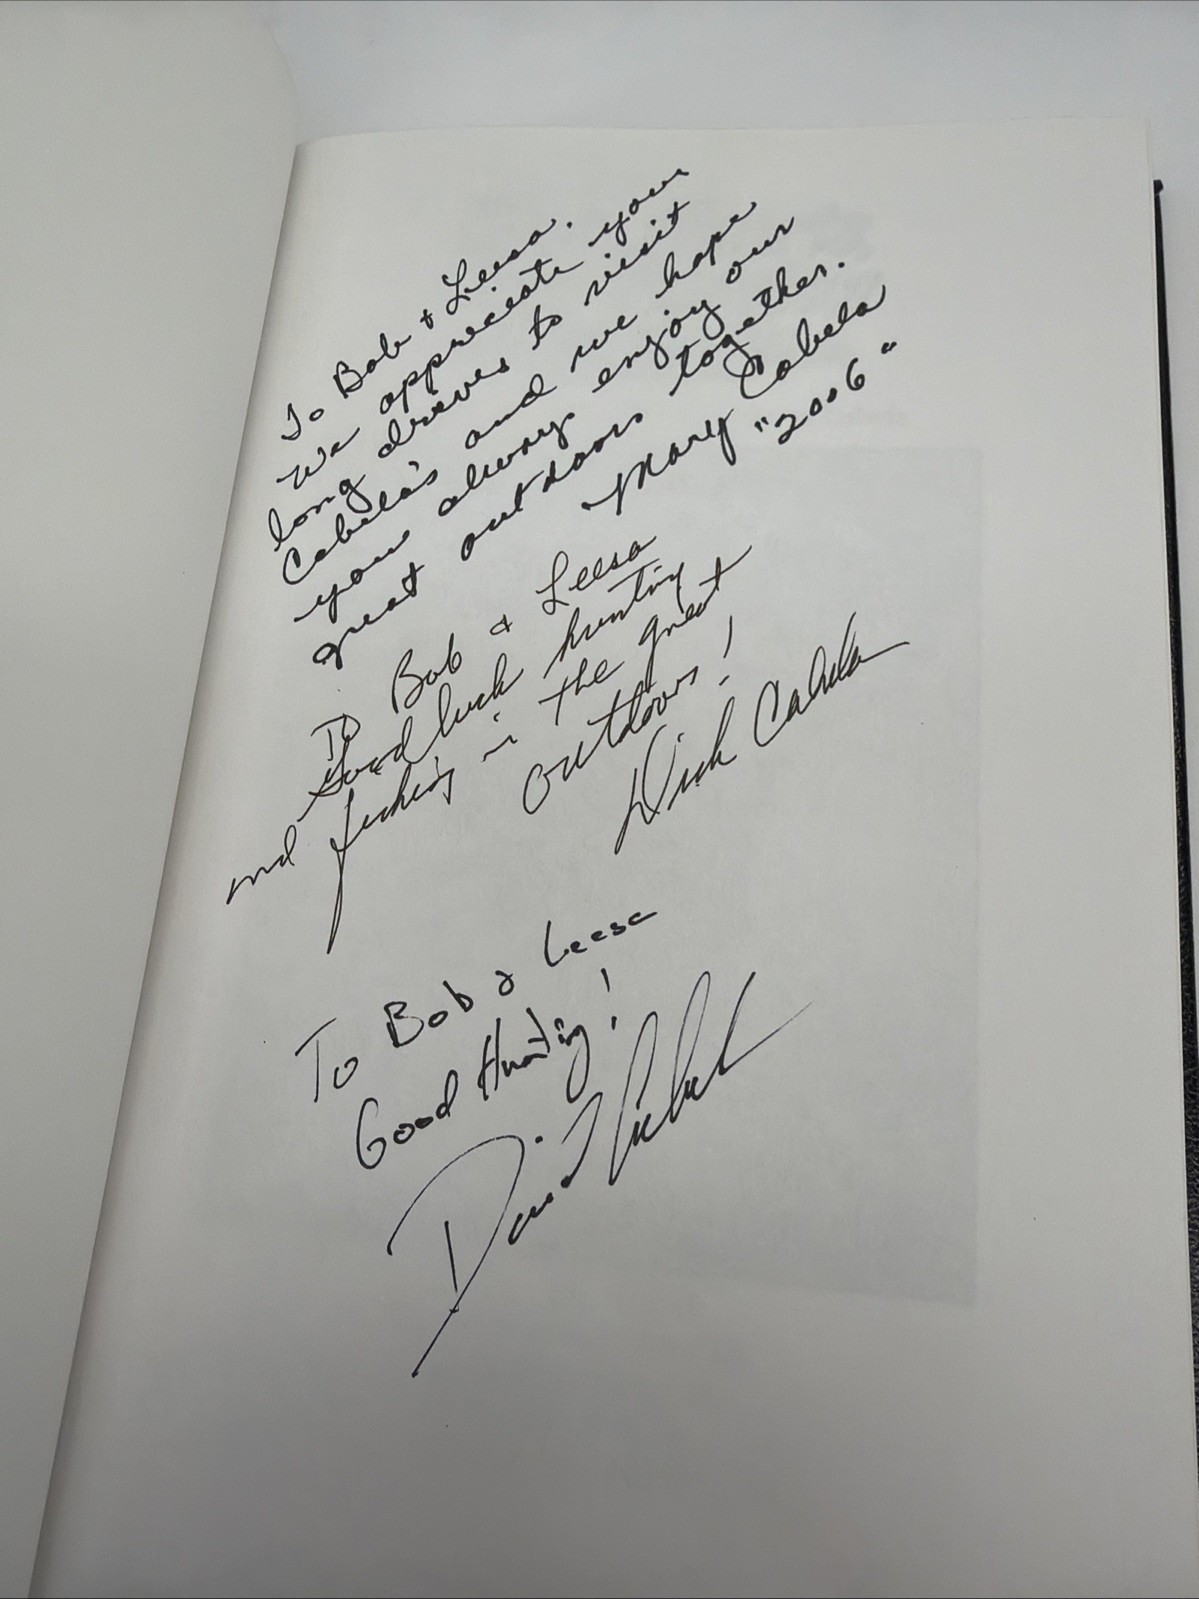 To Bob & Leesa.
We appreciate your
long drives to visit
Cabela's and we hope
you always enjoy our
great outdoors together.
Mary Cabela
"2006"
To Bob & Leesa
Good luck hunting
and fishing in the great
outdoors!
Dick Cabela
To Bob & Leesa
Good Hunting!
David Cabela